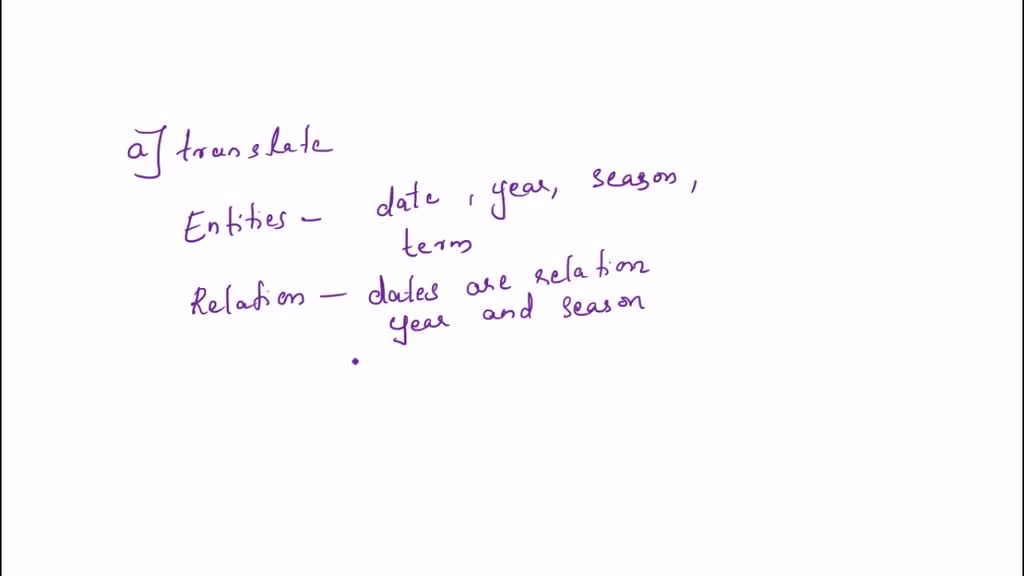 a] translate
Entities - date, year, season,
term
Relation - dates are relation
year and season